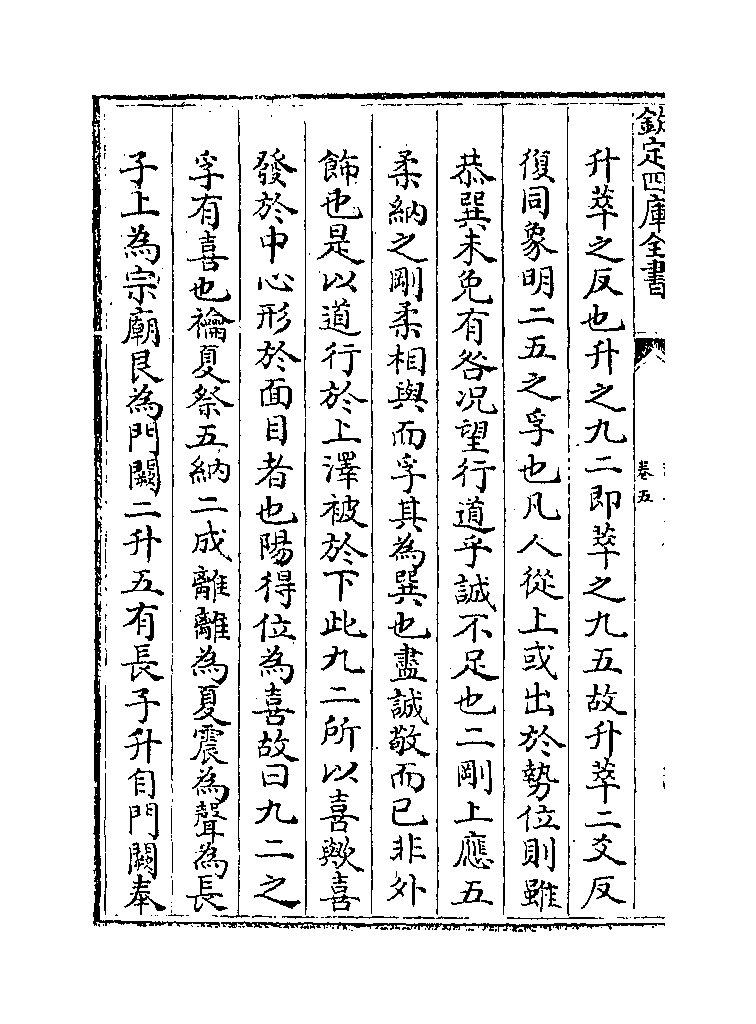 欽定四庫全書
卷五
升萃之反也升之九二即萃之九五故升萃二爻反
復同象明二五之孚也凡人從上或出於勢位則雖
恭巽未免有咎况望行道乎誠不足也二剛上應五
柔納之剛柔相與而孚其為巽也盡誠敬而已非外
飾也是以道行於上澤被於下此九二所以喜歟喜
發於中心形於面目者也陽得位為喜故曰九二之
孚有喜也禴夏祭五納二成離離為夏震為聲為長
子上為宗廟艮為門闕二升五有長子升自門闕奉